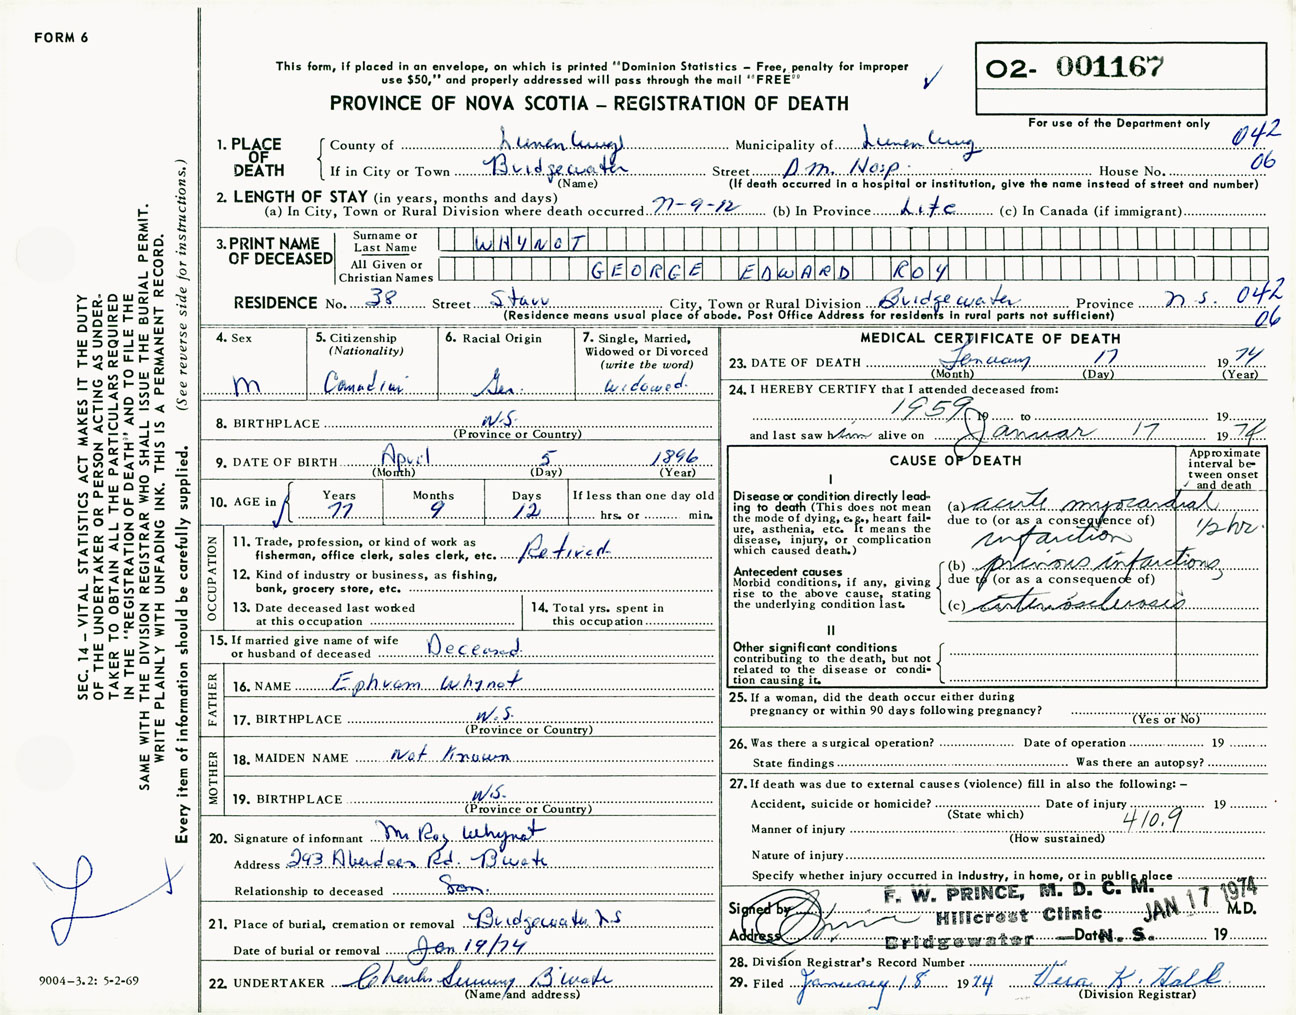 FORM 6
This form, if placed in an envelope, on which is printed "Dominion Statistics – Free, penalty for improper
use $50," and properly addressed will pass through the mail "FREE"
PROVINCE OF NOVA SCOTIA – REGISTRATION OF DEATH
O2- 001167
For use of the Department only
1. PLACE OF DEATH
County of Lunenburg Municipality of Lunenburg 042
If in City or Town Bridgewater Street D.M. Hosp. House No. 06
(Name) (If death occurred in a hospital or institution, give the name instead of street and number)
2. LENGTH OF STAY (in years, months and days)
(a) In City, Town or Rural Division where death occurred 77-9-12 (b) In Province Life (c) In Canada (if immigrant)
3. PRINT NAME OF DECEASED
Surname or Last Name WHYNOT
All Given or Christian Names GEORGE EDWARD ROY
RESIDENCE No. 38 Street Starr City, Town or Rural Division Bridgewater Province N.S. 042
(Residence means usual place of abode. Post Office Address for residents in rural parts not sufficient) 06
4. Sex M
5. Citizenship (Nationality) Canadian
6. Racial Origin Ger.
7. Single, Married, Widowed or Divorced (write the word) Widowed.
8. BIRTHPLACE N.S.
(Province or Country)
9. DATE OF BIRTH April 5 1896
(Month) (Day) (Year)
10. AGE in Years 77 Months 9 Days 12 If less than one day old
hrs. or min.
OCCUPATION
11. Trade, profession, or kind of work as
fisherman, office clerk, sales clerk, etc. Retired
12. Kind of industry or business, as fishing,
bank, grocery store, etc.
13. Date deceased last worked
at this occupation
14. Total yrs. spent in
this occupation
15. If married give name of wife
or husband of deceased Deceased
FATHER
16. NAME Ephram Whynot
17. BIRTHPLACE N.S.
(Province or Country)
MOTHER
18. MAIDEN NAME Not Known
19. BIRTHPLACE N.S.
(Province or Country)
20. Signature of informant Mr Roy Whynot
Address 293 Aberdeen Rd. B'wate
Relationship to deceased Son.
21. Place of burial, cremation or removal Bridgewater N S
Date of burial or removal Jan 19/74
22. UNDERTAKER B'wate
(Name and address)
MEDICAL CERTIFICATE OF DEATH
23. DATE OF DEATH January 17 1974
(Month) (Day) (Year)
24. I HEREBY CERTIFY that I attended deceased from:
1959 19 to 19
and last saw him alive on Januar 17 1974
CAUSE OF DEATH
Approximate interval between onset and death
I
Disease or condition directly lead-
ing to death (This does not mean
the mode of dying, e.g., heart fail-
ure, asthenia, etc. It means the
disease, injury, or complication
which caused death.)
(a) acute myocardial
due to (or as a consequence of)
infarction 1/2 hr.
Antecedent causes
Morbid conditions, if any, giving
rise to the above cause, stating
the underlying condition last.
(b) previous infarctions
due to (or as a consequence of)
(c) arteriosclerosis
II
Other significant conditions
contributing to the death, but not
related to the disease or condi-
tion causing it.
25. If a woman, did the death occur either during
pregnancy or within 90 days following pregnancy?
(Yes or No)
26. Was there a surgical operation? Date of operation 19
State findings Was there an autopsy?
27. If death was due to external causes (violence) fill in also the following: –
Accident, suicide or homicide? Date of injury 19
(State which)
Manner of injury 410.9
(How sustained)
Nature of injury
Specify whether injury occurred in industry, in home, or in public place
F. W. PRINCE, M. D. C. M. JAN 17 1974
Signed by Hillcrest Clinic M.D.
Address Bridgewater N. S. Date 19
28. Division Registrar's Record Number
29. Filed January 18 1974 Vera K. Hall
(Division Registrar)
SEC. 14 – VITAL STATISTICS ACT MAKES IT THE DUTY
OF THE UNDERTAKER OR PERSON ACTING AS UNDER-
TAKER TO OBTAIN ALL THE PARTICULARS REQUIRED
IN THE "REGISTRATION OF DEATH" AND TO FILE THE
SAME WITH THE DIVISION REGISTRAR WHO SHALL ISSUE THE BURIAL PERMIT.
WRITE PLAINLY WITH UNFADING INK. THIS IS A PERMANENT RECORD.
Every item of information should be carefully supplied. (See reverse side for instructions.)
9004–3.2: 5-2-69